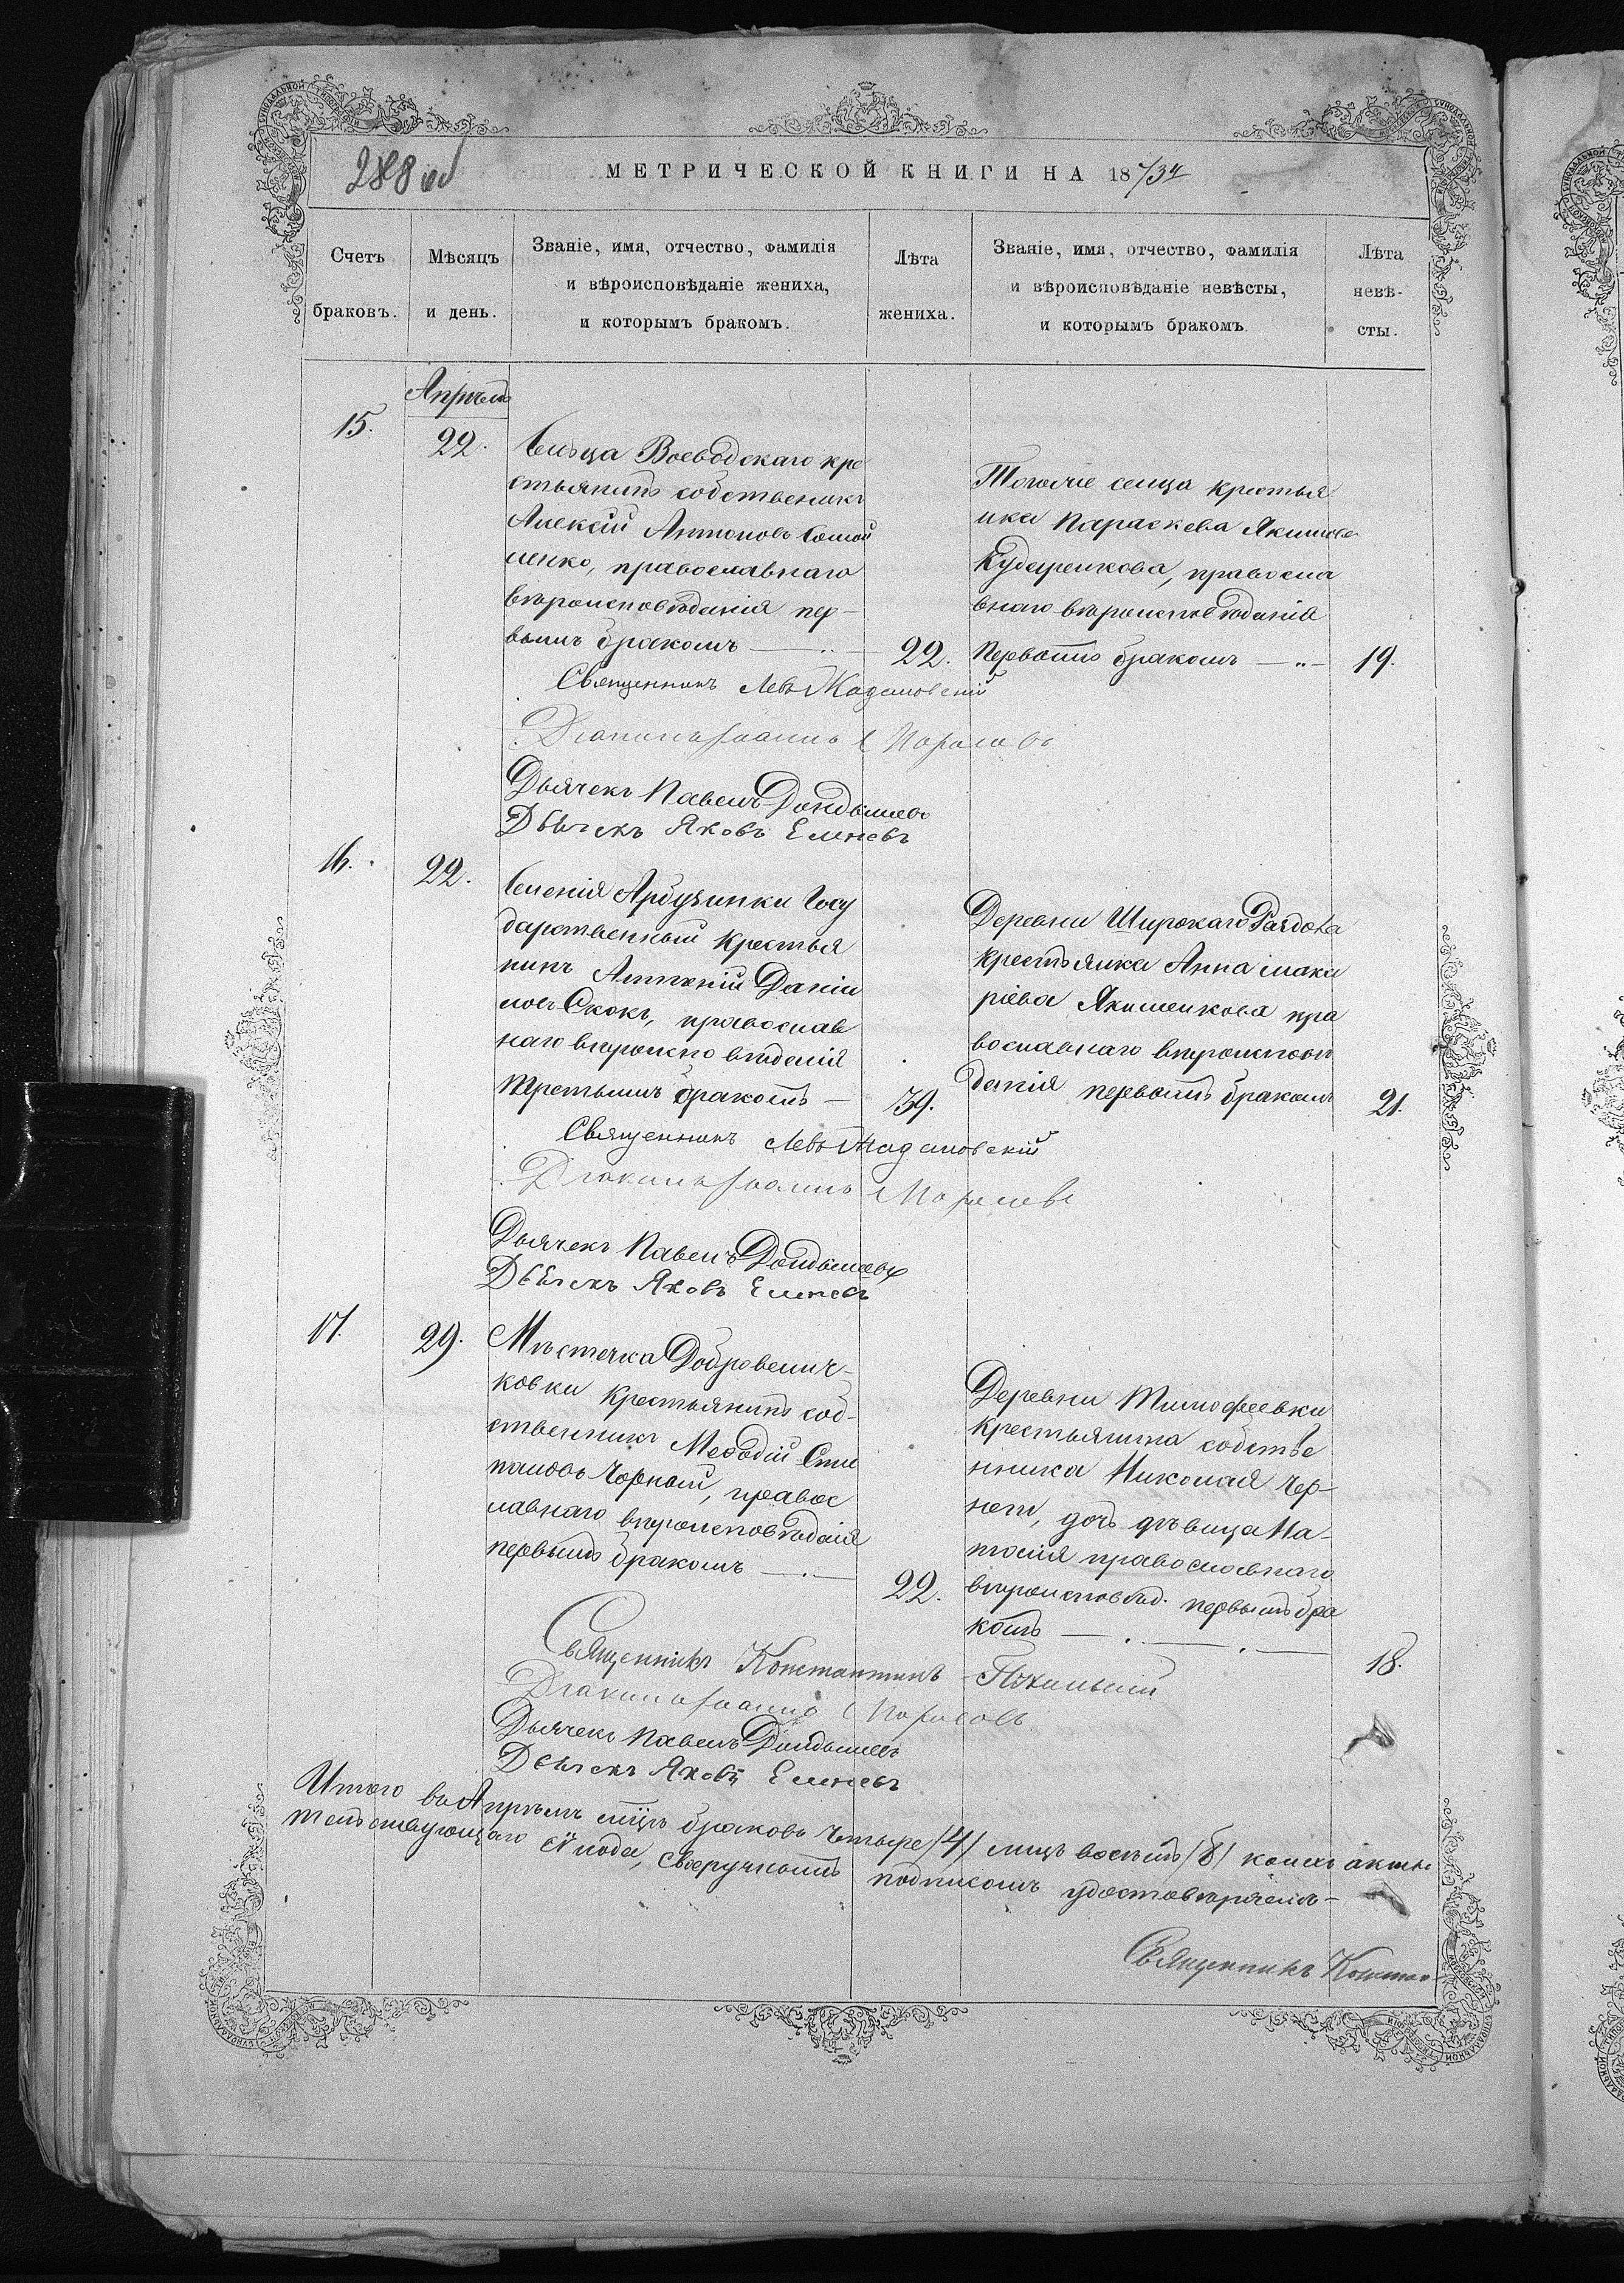 288 об
МЕТРИЧЕСКОЙ КНИГИ НА 1873й
Счетъ браковъ.
Мѣсяцъ и день.
Званіе, имя, отчество, фамилія
и вѣроисповѣданіе жениха,
и которымъ бракомъ.
Лѣта жениха.
Званіе, имя, отчество, фамилія
и вѣроисповѣданіе невѣсты,
и которымъ бракомъ
Лѣта невѣ-
сты.
Апрѣль
15.
22.
Сельца Воеводскаго кре
стьянинъ собственикъ
Алексѣй Антоновъ Самой
ленко, православнаго
вѣроисповѣданія пер-
вымъ бракомъ
22.
Тогоже сельца крестья
нка Параскева Якимова
Кухаренкова, правосла
внаго вѣроисповѣданія
первымъ бракомъ
19.
Священникъ Левъ
Діаконъ Іоаннъ
Дьячекъ Павелъ
Дьячекъ Яковъ
16.
22.
Селенія Арбузинки Госу
дарственный крестья
нинъ Антоній Даніи
ловъ Скокъ, православ
наго вѣроисповѣданія
третьимъ бракомъ
39.
Деревни Широкаго Раздола
крестьянка Анна Мака
ріева Якименкова пра
вославнаго вѣроисповѣ
данія первымъ бракомъ
21.
Священникъ Левъ
Діаконъ Іоаннъ
Дьячекъ Павелъ
Дьячекъ Яковъ
17.
29.
Мѣстечка Добровелич-
ковки крестьянинъ соб-
ственникъ Меѳодій Сте
пановъ Чорный, правос
лавнаго вѣроисповѣданія
первымъ бракомъ
22.
Деревни Тимофеевки
крестьянина собстве
нника Николая Чер-
ного, дочь дѣвица На-
талія православнаго
вѣроисповѣд. первымъ бра
комъ
18.
Священникъ Константинъ
Діаконъ Іоаннъ
Дьячекъ Павелъ
Дьячекъ Яковъ
Итого въ Апрѣлѣ мцѣ браковъ четыре /4/ лицъ восемъ /8/ коихъ
года, своеручнымъ подписомъ удостовѣряемъ-
Священникъ